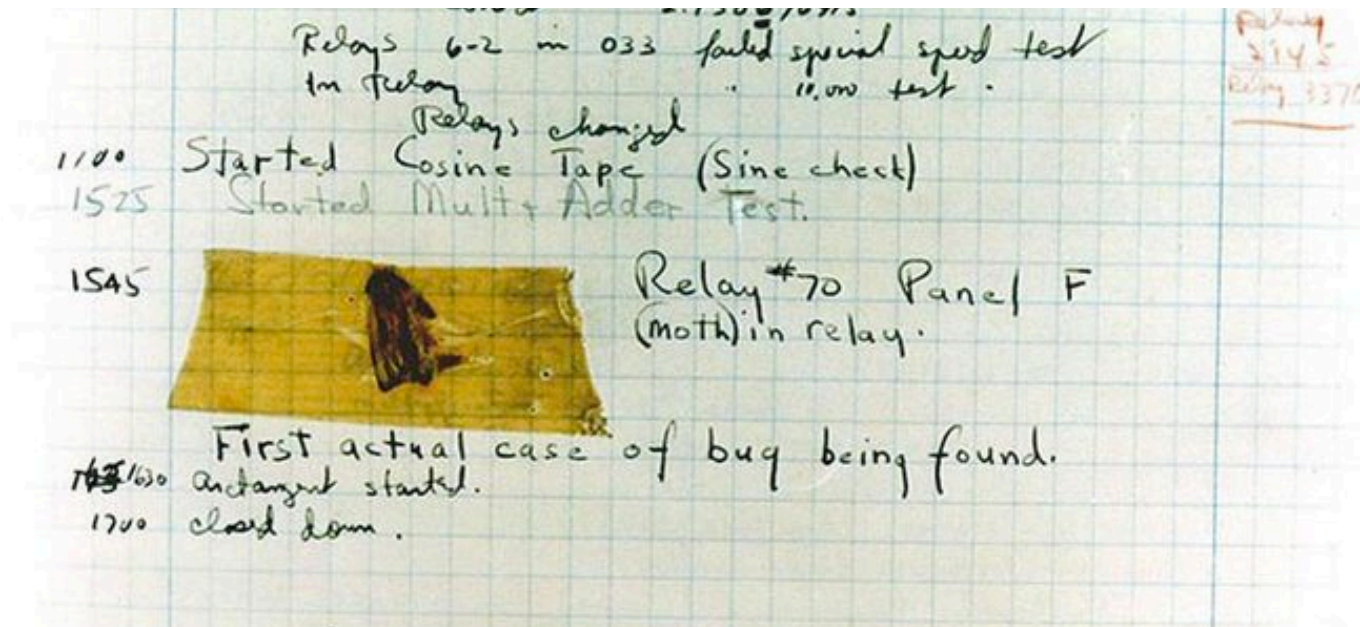 Relays 6-2 in 033 failed special speed test
In Relay " 10,000 test .
Relays changed
1100 Started Cosine Tape (Sine check)
1525 Started Mult + Adder Test.
1545 Relay #70 Panel F
(moth) in relay.
First actual case of bug being found.
1630 arctangent started.
1700 closed down.
Relay
Relay 3370